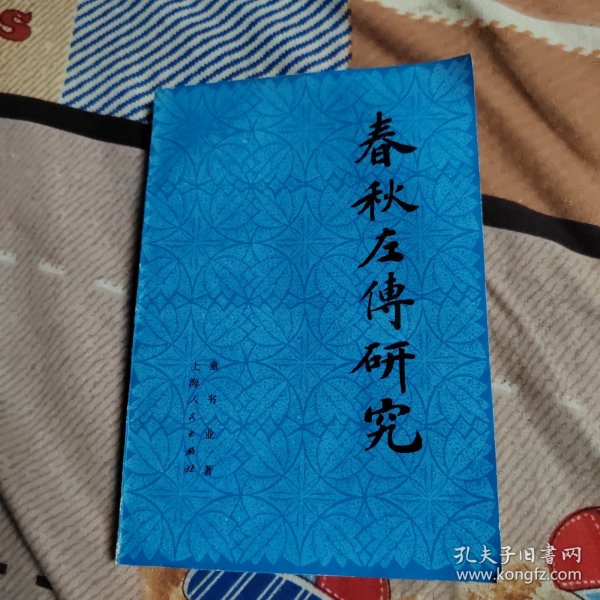 春秋左傳研究
童书业著
上海人民出版社
孔夫子旧书网
www.kongfz.com